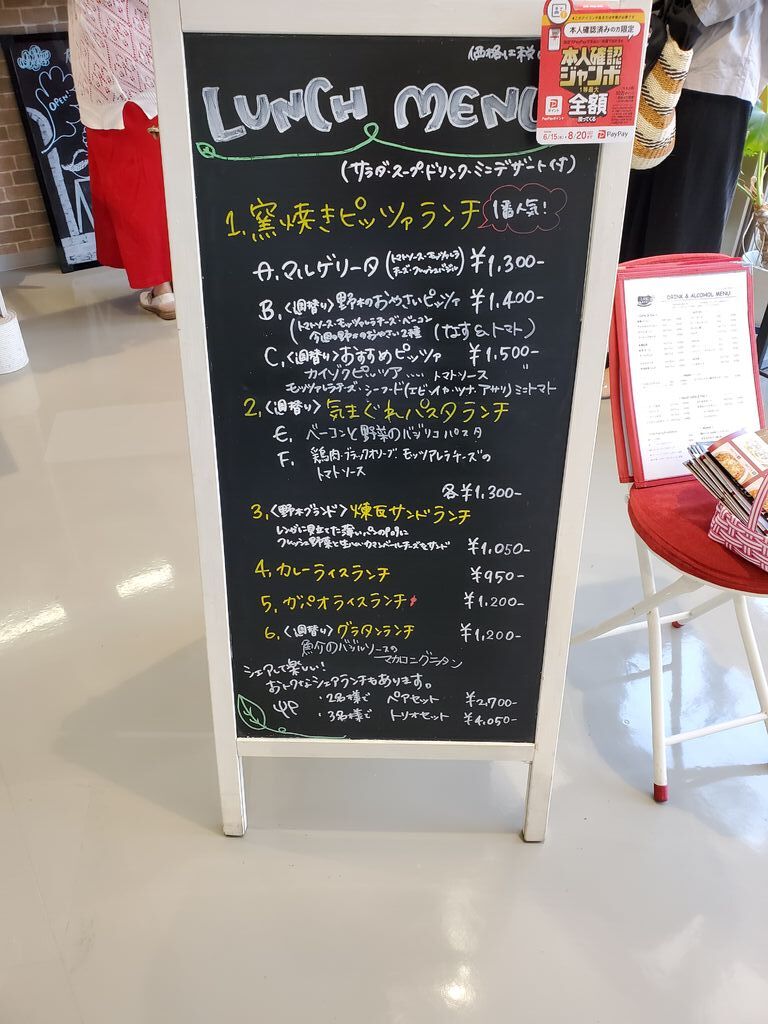 価格は税
LUNCH MENU
(サラダ・スープ・ドリンク・ミニデザート付)
1. 窯焼きピッツァランチ 1番人気!
A. マルゲリータ (トマトソース・モッツァレラ ¥1,300-
チーズ・フレッシュバジル)
B. 〈週替り〉野木のおやさいピッツァ ¥1,400-
(トマトソース・モッツァレラチーズ・ベーコン
今週の野木のおやさい2種 (なす&トマト)
C. 〈週替り〉おすすめピッツァ ¥1,500-
カイゾクピッツァ‥‥ トマトソース
モッツァレラチーズ・シーフード(エビ・イカ・ツナ・アサリ)ミニトマト
2. 〈週替り〉気まぐれパスタランチ
E. ベーコンと野菜のバジリコパスタ
F. 鶏肉・ブラックオリーブ・モッツァレラチーズの
トマトソース
各¥1,300-
3. 〈野木グランド〉煉瓦サンドランチ
レンガに見立てた薄いパンの中に
フレッシュ野菜と生ハム・カマンベールチーズをサンド ¥1,050-
4. カレーライスランチ ¥950-
5. ガパオライスランチ ¥1,200-
6. 〈週替り〉グラタンランチ ¥1,200-
魚介のバジルソースの
マカロニグラタン
シェアして楽しい!
おトクなシェアランチもあります。
・2名様で ペアセット ¥2,700-
・3名様で トリオセット ¥4,050-
本人確認済みの方限定
本人確認
ジャンボ
1等最大
全額
戻ってくる
6/15(水) 8/20
PayPay
OPEN
DRINK & ALCOHOL MENU